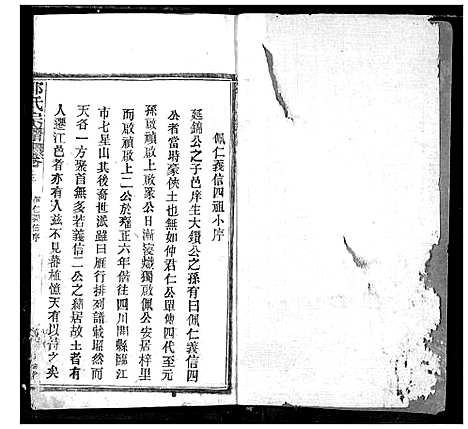 佩仁義信四祖小序
延錦公之子邑庠生大鑽公之孫有曰佩仁義信四
公者當時豪俠士也無如仲君仁公單傳四代至元
孫啟禎啟上啟象公日漸寢熾獨啟佩公安居梓里
而啟禎啟上二公於雍正六年偕往四川開縣臨江
市七星山其後裔世派雖曰雁行排列譜載昭然而
天各一方聚首無多若義信二公之緒居故土者有
人遷江邑者亦有人茲不見蕃植憶天有以待之矣
氏宗譜